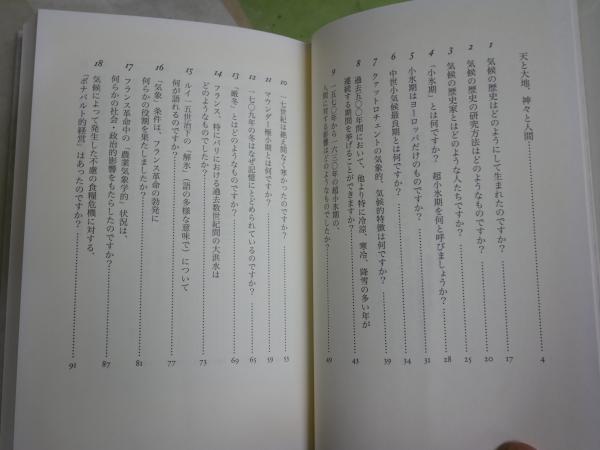 天と大地、神々と人間 4
1 気候の歴史はどのようにして生まれたのですか? 17
2 気候の歴史の研究方法はどのようなものですか? 20
3 気候の歴史家とはどのような人たちですか? 25
4 「小氷期」とは何ですか? 超小氷期を何と呼びましょうか? 28
5 小氷期はヨーロッパだけのものですか? 31
6 中世小気候最良期とは何ですか? 34
7 クァットロチェントの気象的、気候的特徴は何ですか? 39
8 過去五〇〇年間において、他より特に冷涼、寒冷、降雪の多い年が
連続する期間を挙げることができますか? 43
9 一五七〇年から一六三〇年の超小氷期の、
人間に対する影響はどのようなものでしたか? 49
10 一七世紀は絶え間なく寒かったのですか? 53
11 マウンダー極小期とは何ですか? 59
12 一七〇九年の冬はなぜ記憶にとどめられているのですか? 65
13 「厳冬」とはどのようなものですか? 69
14 フランス、特にパリにおける過去数世紀間の大洪水は
どのようなものでしたか? 73
15 ルイ一五世治下の「解氷」(語の多様な意味で)について
何が語れるのですか? 77
16 「気象」条件は、フランス革命の勃発に
何らかの役割を果たしましたか? 81
17 フランス革命中の「農業気象学的」状況は、
何らかの社会・政治的影響をもたらしたのですか? 87
18 気候によって発生した不慮の食糧危機に対する、
「ボナパルト的経営」はあったのですか? 91